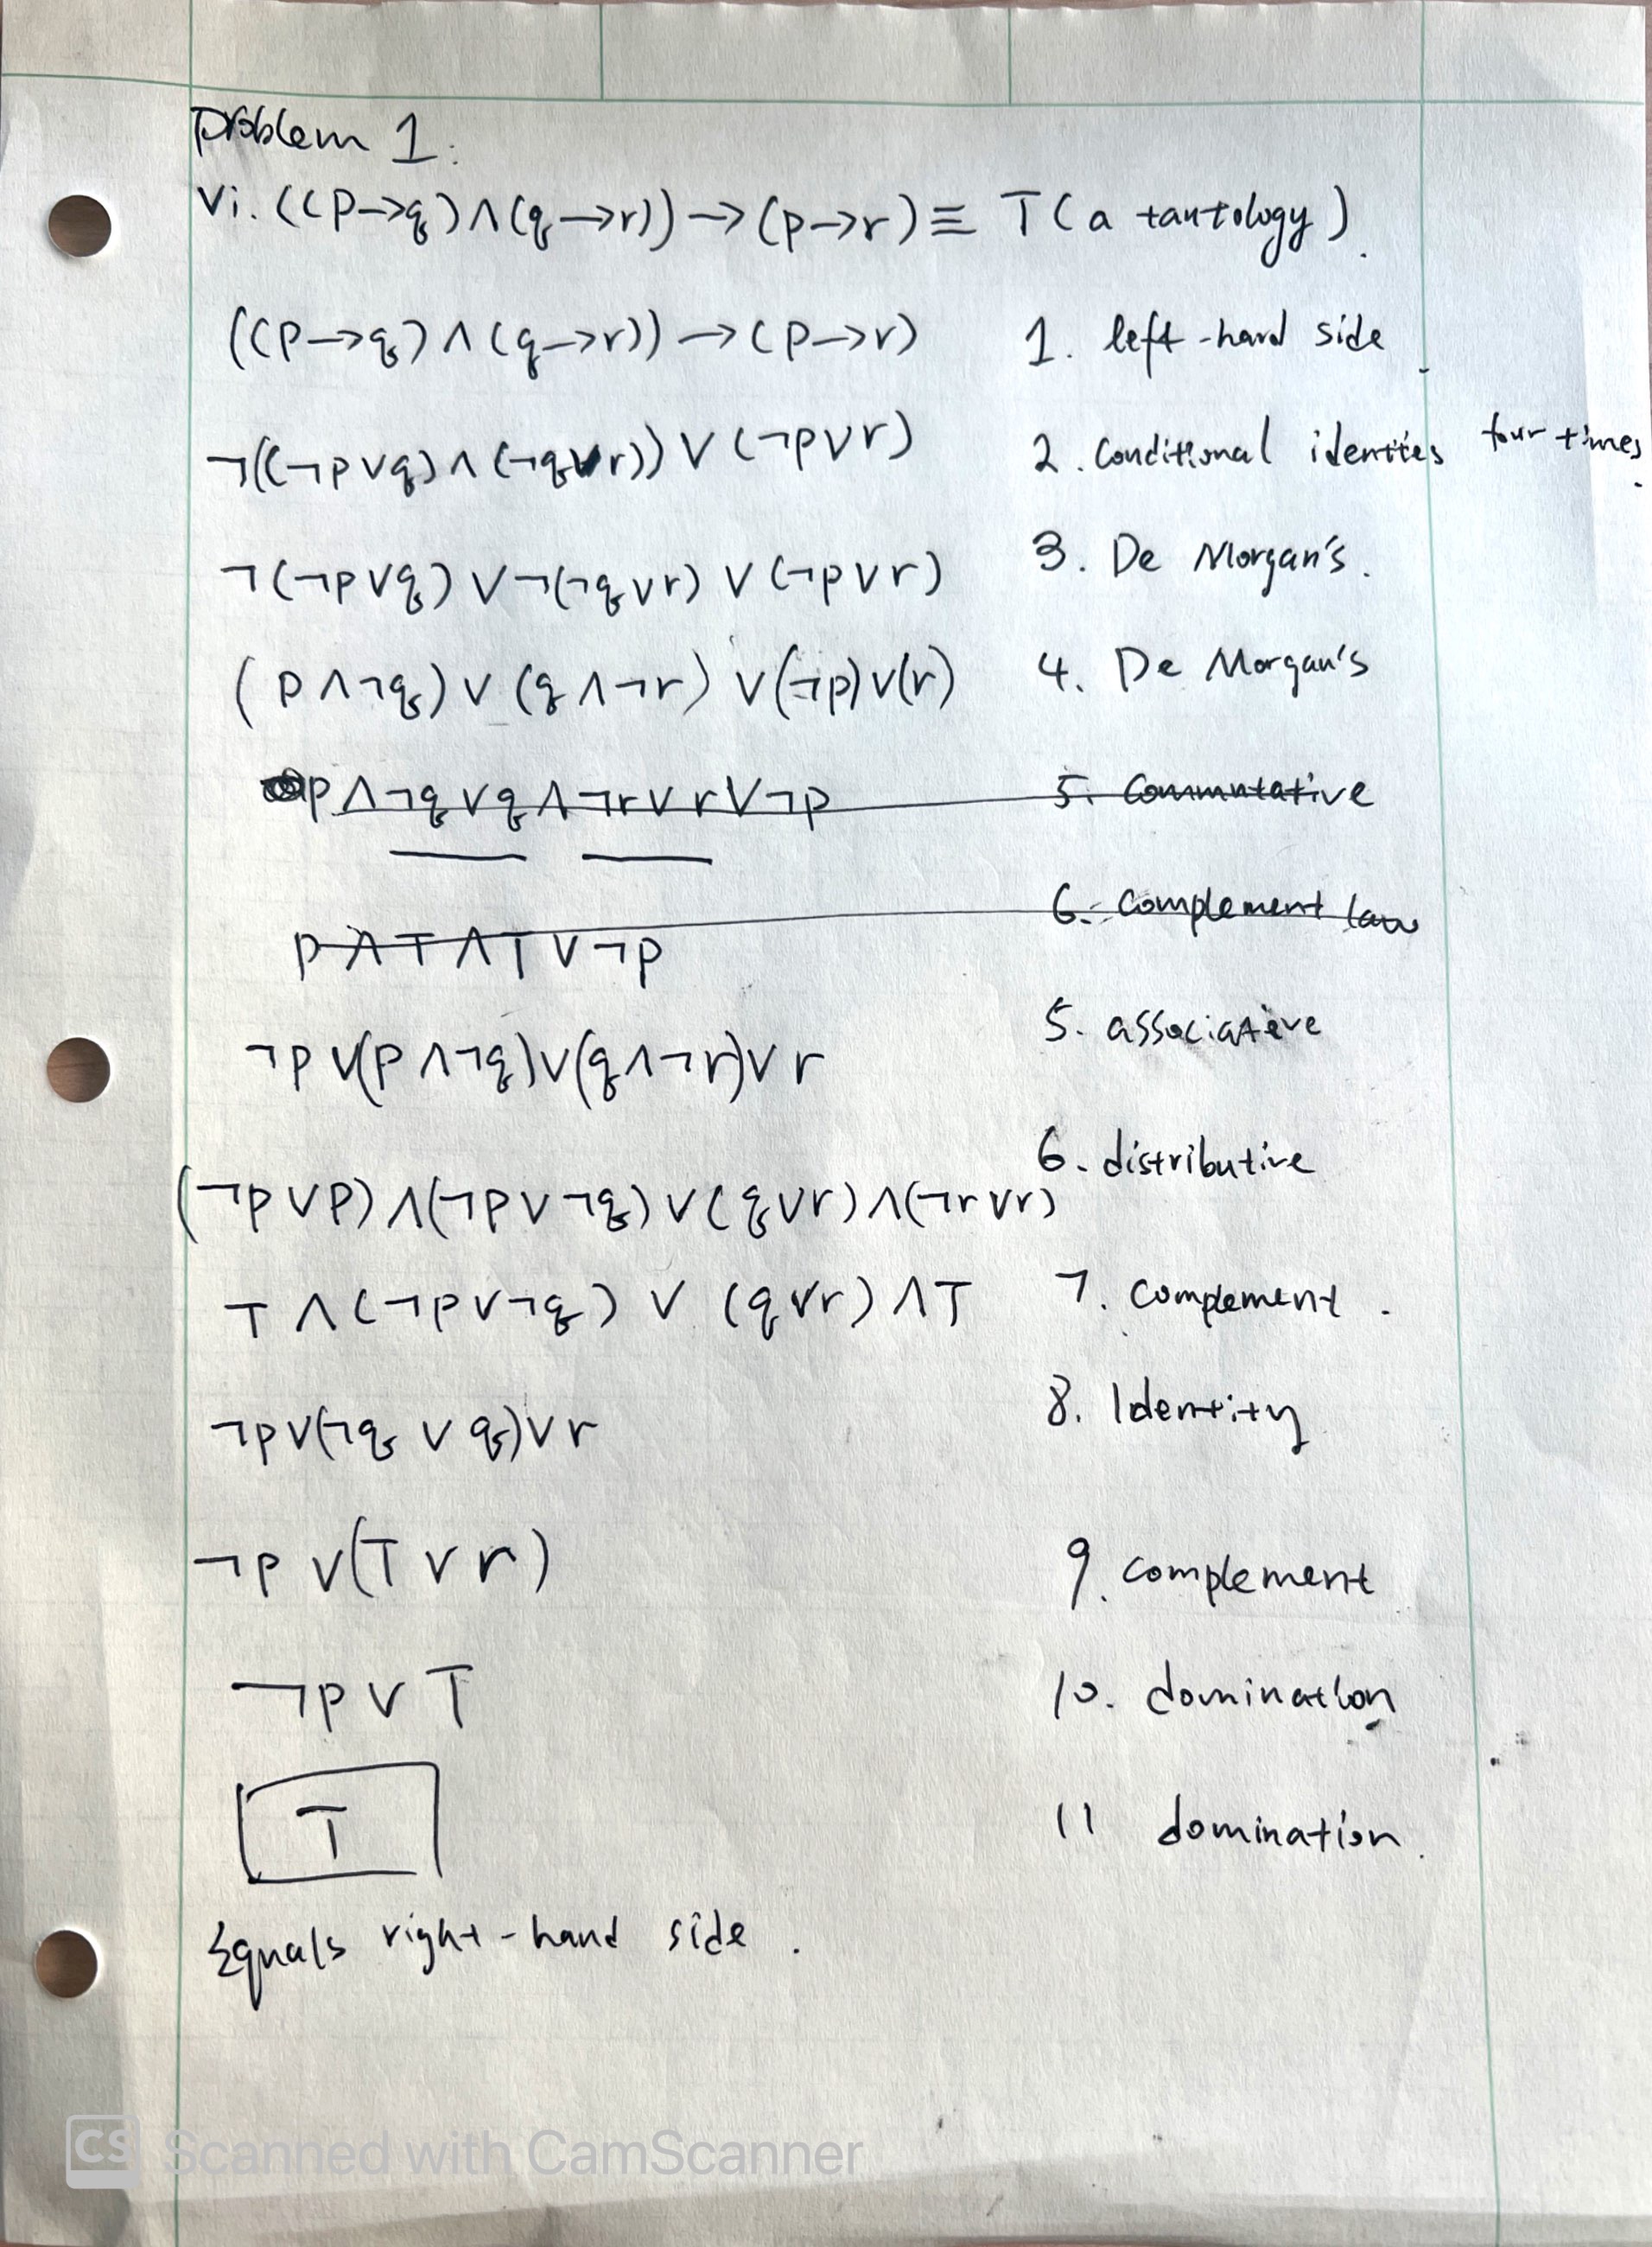 Problem 1.
Vi. ((p→q)∧(q→r))→(p→r)≡ T(a tautology).
((p→q)∧(q→r))→(p→r) 1. left-hand side
¬((¬p∨q)∧(¬q∨r))∨(¬p∨r) 2. Conditional identties four times.
¬(¬p∨q)∨¬(¬q∨r)∨(¬p∨r) 3. De Morgan's.
(p∧¬q)∨(q∧¬r)∨(¬p)∨(r) 4. De Morgan's
p∧¬q∨q∧¬r∨r∨¬p 5. Commutative
p∧T∧T∨¬p 6. Complement law
¬p∨(p∧¬q)∨(q∧¬r)∨r 5. associative
(¬p∨p)∧(¬p∨¬q)∨(q∨r)∧(¬r∨r) 6. distributive
T∧(¬p∨¬q)∨(q∨r)∧T 7. Complement.
¬p∨(¬q∨q)∨r 8. Identity
¬p∨(T∨r) 9. complement
¬p∨T 10. domination
T 11 domination.
Equals right-hand side.
CS Scanned with CamScanner